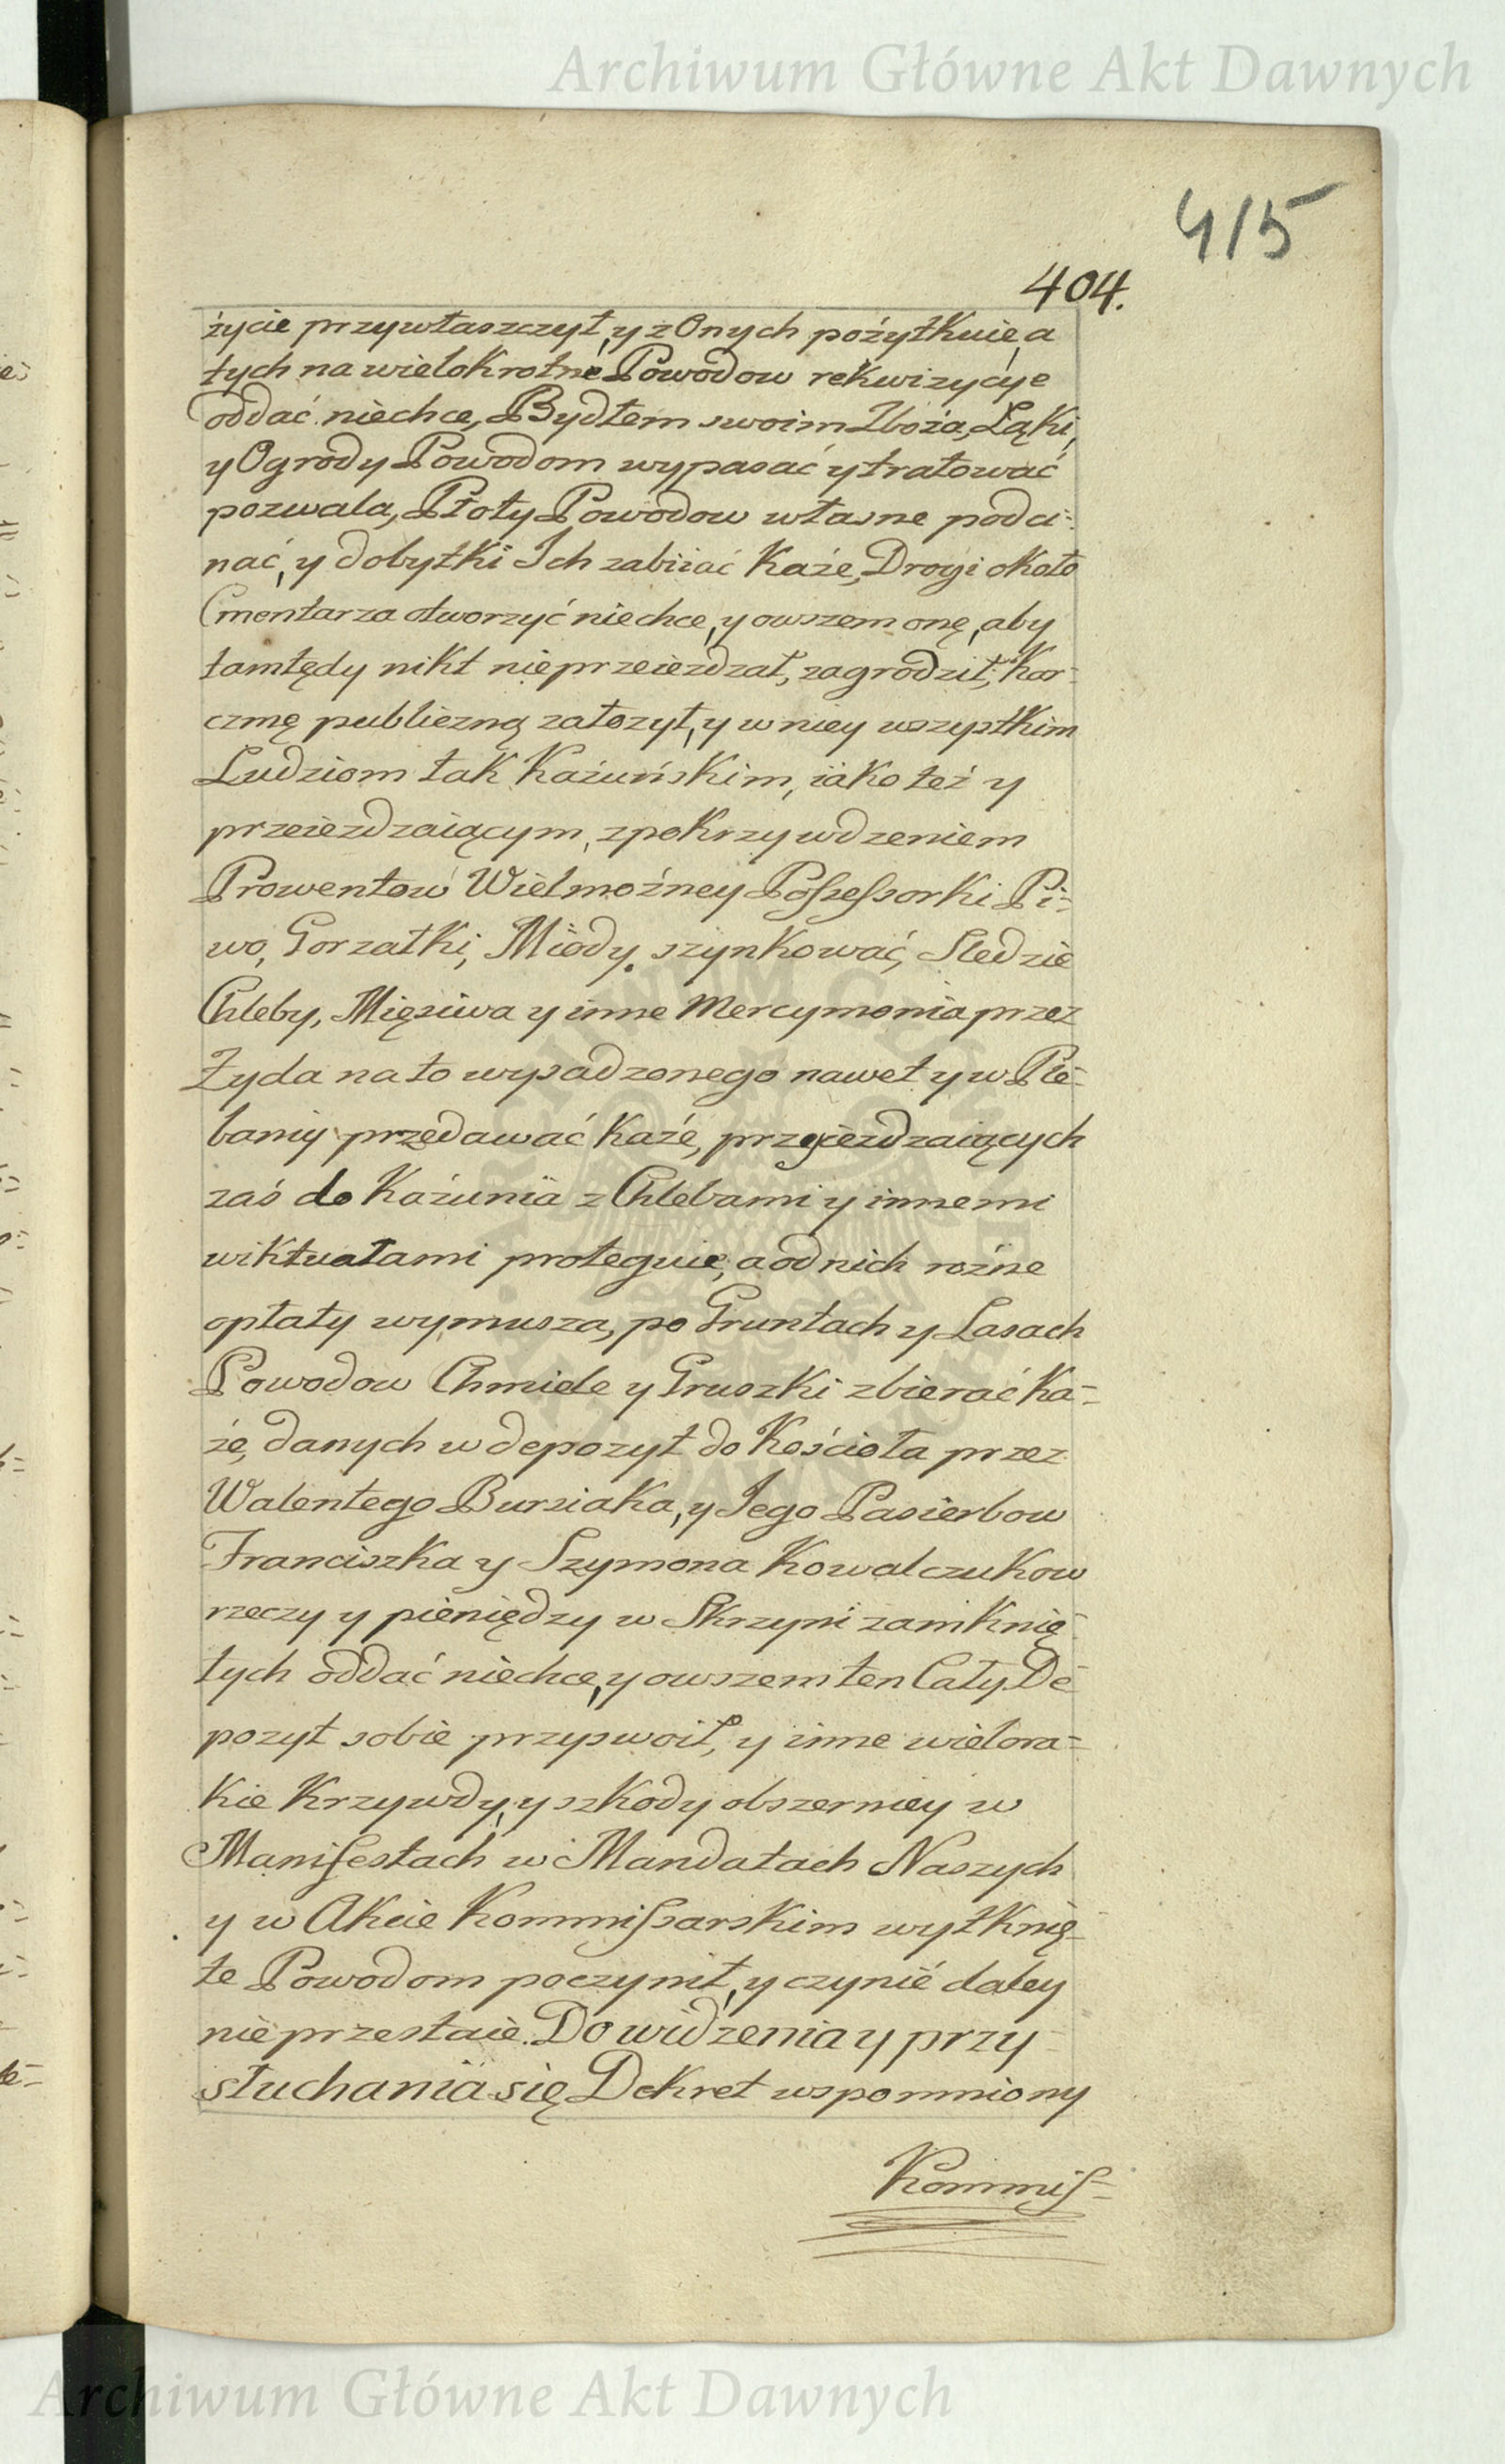 Archiwum Główne Akt Dawnych
415
404.
życie przywłaszczył, y z Onych pożytkuie, a
tych na wielokrotne Powodow rekwizycye
oddać niechce, Bydłem swoim Zboża, Łąki,
y Ogrody Powodom wypasać y tratować
pozwala, Płoty Powodow własne podci=
nać, y dobytki Ich zabiiać Każe, Drogi około
Cmentarza otworzyć niechce, y owszem onę, aby
tamtędy nikt nieprzeieżdzał, zagrodził, Kar=
czmę publiczną założył, y w niey wszystkim
Ludziom tak Każuńskim, iako też y
przeieżdzaiącym, z pokrzywdzeniem
Prowentow Wielmożney Possessorki Pi=
wo, Gorzałki, Miody szynkować, Sledzie
Chleby, Mięsiwa y inne Mercymonia przez
Żyda na to wysadzonego nawet y w Ple=
banij przedawać Każe, przyieżdzaiących
zaś do Każunia z Chlebami y innemi
wiktuałami proteguie, a od nich rożne
opłaty wymusza, po Gruntach y Lasach
Powodow Chmiele y Gruszki zbierać Ka=
że, danych w depozyt do Kościoła przez
Walentego Bursiaka, y Jego Pasierbow
Franciszka y Szymona Kowalczukow
rzeczy y pieniędzy w Skrzyni zamknię=
tych oddać niechce, y owszem ten Cały De=
pozyt sobie przyswoił, y inne wielora=
kie Krzywdy, y szkody obszerniey w
Manifestach w Mandatach Naszych
y w Akcie Kommissarskim wytknię=
te Powodom poczynił, y czynić daley
nieprzestaie. Do widzenia y przy=
słuchania się Dekret wspomniony
Kommis=
Archiwum Główne Akt Dawnych